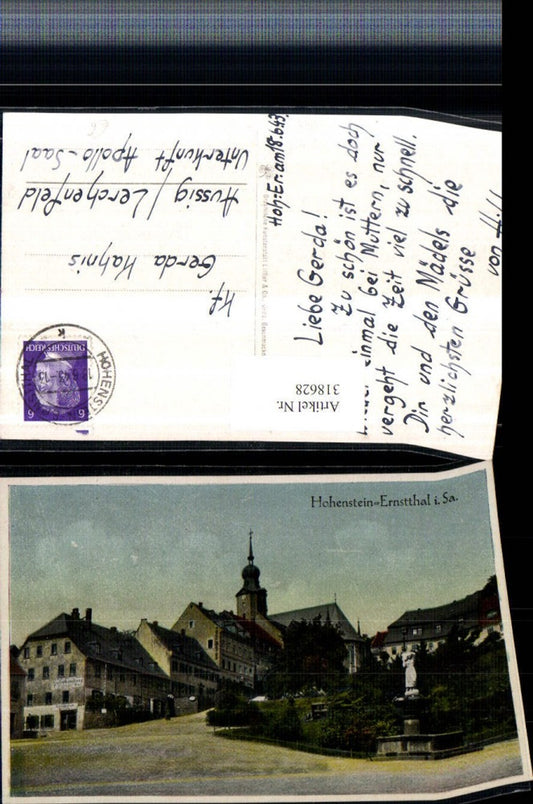 Hoh.-Er. am 18.6.43.
Liebe Gerda!
Zu schön ist es doch
einmal bei Muttern, nur
vergeht die Zeit viel zu schnell.
Dir und den Mädels die
herzlichsten Grüsse
von
Hf.
Gerda Hahnis
Aussig / Lerchenfeld
Unterkunft Apollo-Saal
DEUTSCHES REICH
6 6
HOHENST
K
Artikel Nr.
318628
Hohenstein-Ernstthal i. Sa.